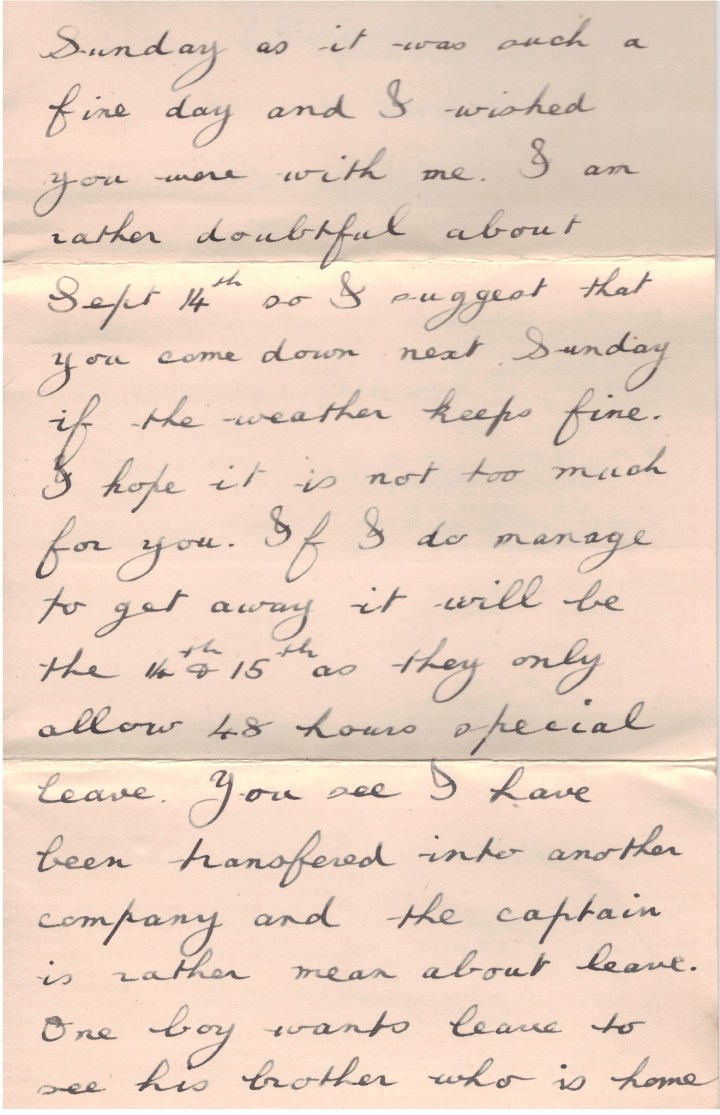 Sunday as it was such a
fine day and I wished
you were with me. I am
rather doubtful about
Sept 14th so I suggest that
you come down next Sunday
if the weather keeps fine.
I hope it is not too much
for you. If I do manage
to get away it will be
the 14th & 15th as they only
allow 48 hours special
leave. You see I have
been transfered into another
company and the captain
is rather mean about leave.
One boy wants leave to
see his brother who is home